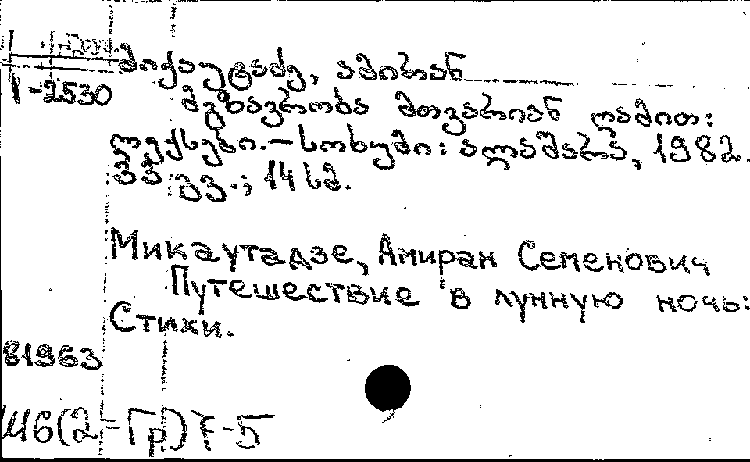 I-2530
მიქაუტაძე, ამირან
მგზავრობა მთვარიან ღამით:
ლექსები.—სოხუმი: ალაშარა, 1982.
33 გვ.; 14 სმ.
Микаутадзе, Амиран Семенович
Путешествие в лунную ночь:
Стихи.
81963
Ш6(2-Гр)7-5